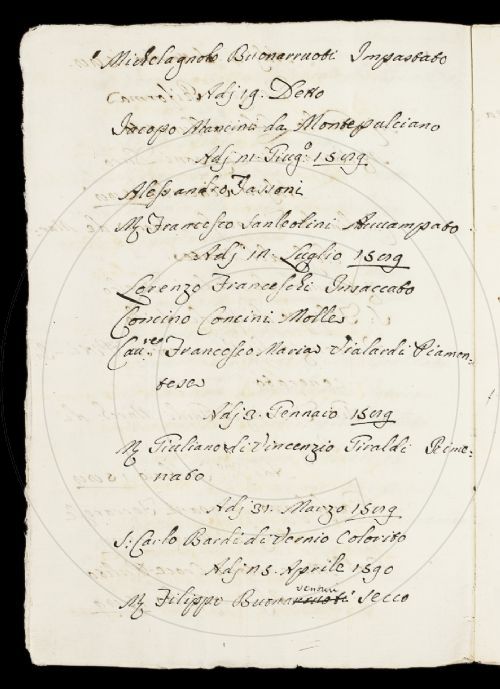 Michelagnolo Buonarruoti Impastato
Adj 19. Detto
Jacopo Mancini da Montepulciano
Adj 11. Giug.o 1589
Alessandro Tassoni
Mr Francesco Sanleolini Accampato
Adj 14. Luglio 1589
Lorenzo Franceschi Insaccato
Concino Concini Molle
Cau.re Francesco Maria Vialardi Piamon-
tese
Adj 3. Gennaio 1589
Mr Giuliano di Vincenzio Giraldi Rime-
nato
Adj 31. Marzo 1589
S. Carlo Bardi di Vernio Colorito
Adj 13. Aprile 1590
venturi
Mr Filippo Buonarruoti Secco